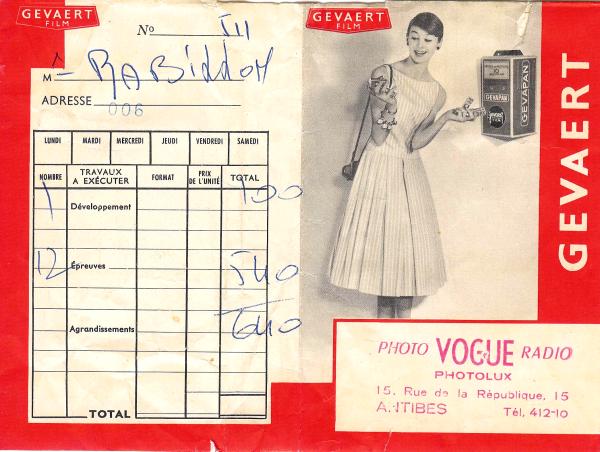 GEVAERT
FILM
No 511
M - RABIDDOM
ADRESSE
006
LUNDI MARDI MERCREDI JEUDI VENDREDI SAMEDI
NOMBRE TRAVAUX A EXÉCUTER FORMAT PRIX DE L'UNITÉ TOTAL
1 Développement 100
12 Épreuves 540
Agrandissements 640
TOTAL
GEVAERT
FILM
GEVAPAN
GEVAPAN
GEVAERT
PHOTO VOGUE RADIO
PHOTOLUX
15, Rue de la République, 15
ANTIBES Tél, 412-10